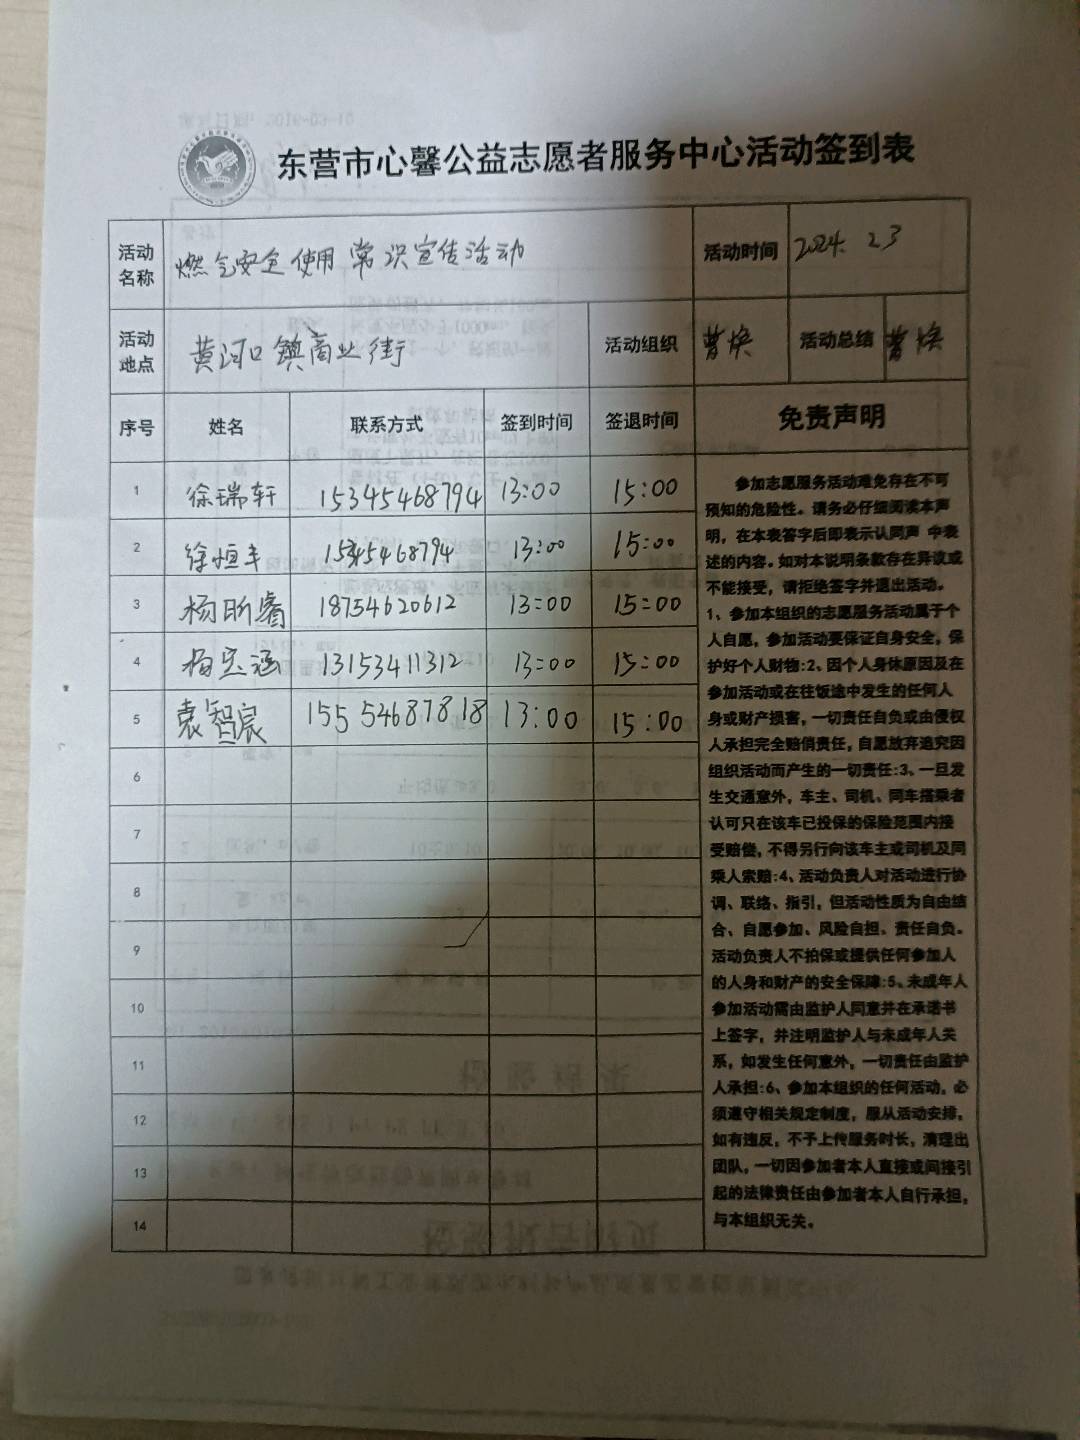 东营市心馨公益志愿者服务中心活动签到表
活动名称 燃气安全使用常识宣传活动 活动时间 2024. 2 3
活动地点 黄河口镇商业街 活动组织 曹焕 活动总结 曹焕
序号 姓名 联系方式 签到时间 签退时间 免责声明
1 徐瑞轩 15345468794 13:00 15:00
2 徐恒丰 15345468794 13:00 15:00
3 杨昕睿 18754620612 13:00 15:00
4 杨宝涵 13153411312 13:00 15:00
5 袁智宸 15554687818 13:00 15:00
6
7
8
9
10
11
12
13
14
参加志愿服务活动难免存在不可
预知的危险性。请务必仔细阅读本声
明，在本表答字后即表示认同声 中表
述的内容。如对本说明条款存在异议或
不能接受，请拒绝签字并退出活动。
1、参加本组织的志愿服务活动属于个
人自愿，参加活动要保证自身安全，保
护好个人财物:2、因个人身休原因及在
参加活动或在往饭途中发生的任何人
身或财产损害，一切责任自负或由侵权
人承担完全赔偿责任，自愿放弃追究因
组织活动而产生的一切责任:3、一旦发
生交通意外，车主、司机、同车搭乘者
认可只在该车已投保的保险范围内接
受赔偿，不得另行向该车主或司机及同
乘人索赔:4、活动负责人对活动进行协
调、联络、指引，但活动性质为自由结
合、自愿参加、风险自担、责任自负。
活动负责人不拍保或提供任何参加人
的人身和财产的安全保障:5、未成年人
参加活动需由监护人同意并在承诺书
上签字，并注明监护人与未成年人关
系，如发生任何意外，一切责任由监护
人承担:6、参加本组织的任何活动，必
须遵守相关规定制度，服从活动安排，
如有违反，不予上传服务时长，清理出
团队，一切因参加者本人直接或间接引
起的法律责任由参加者本人自行承担，
与本组织无关。